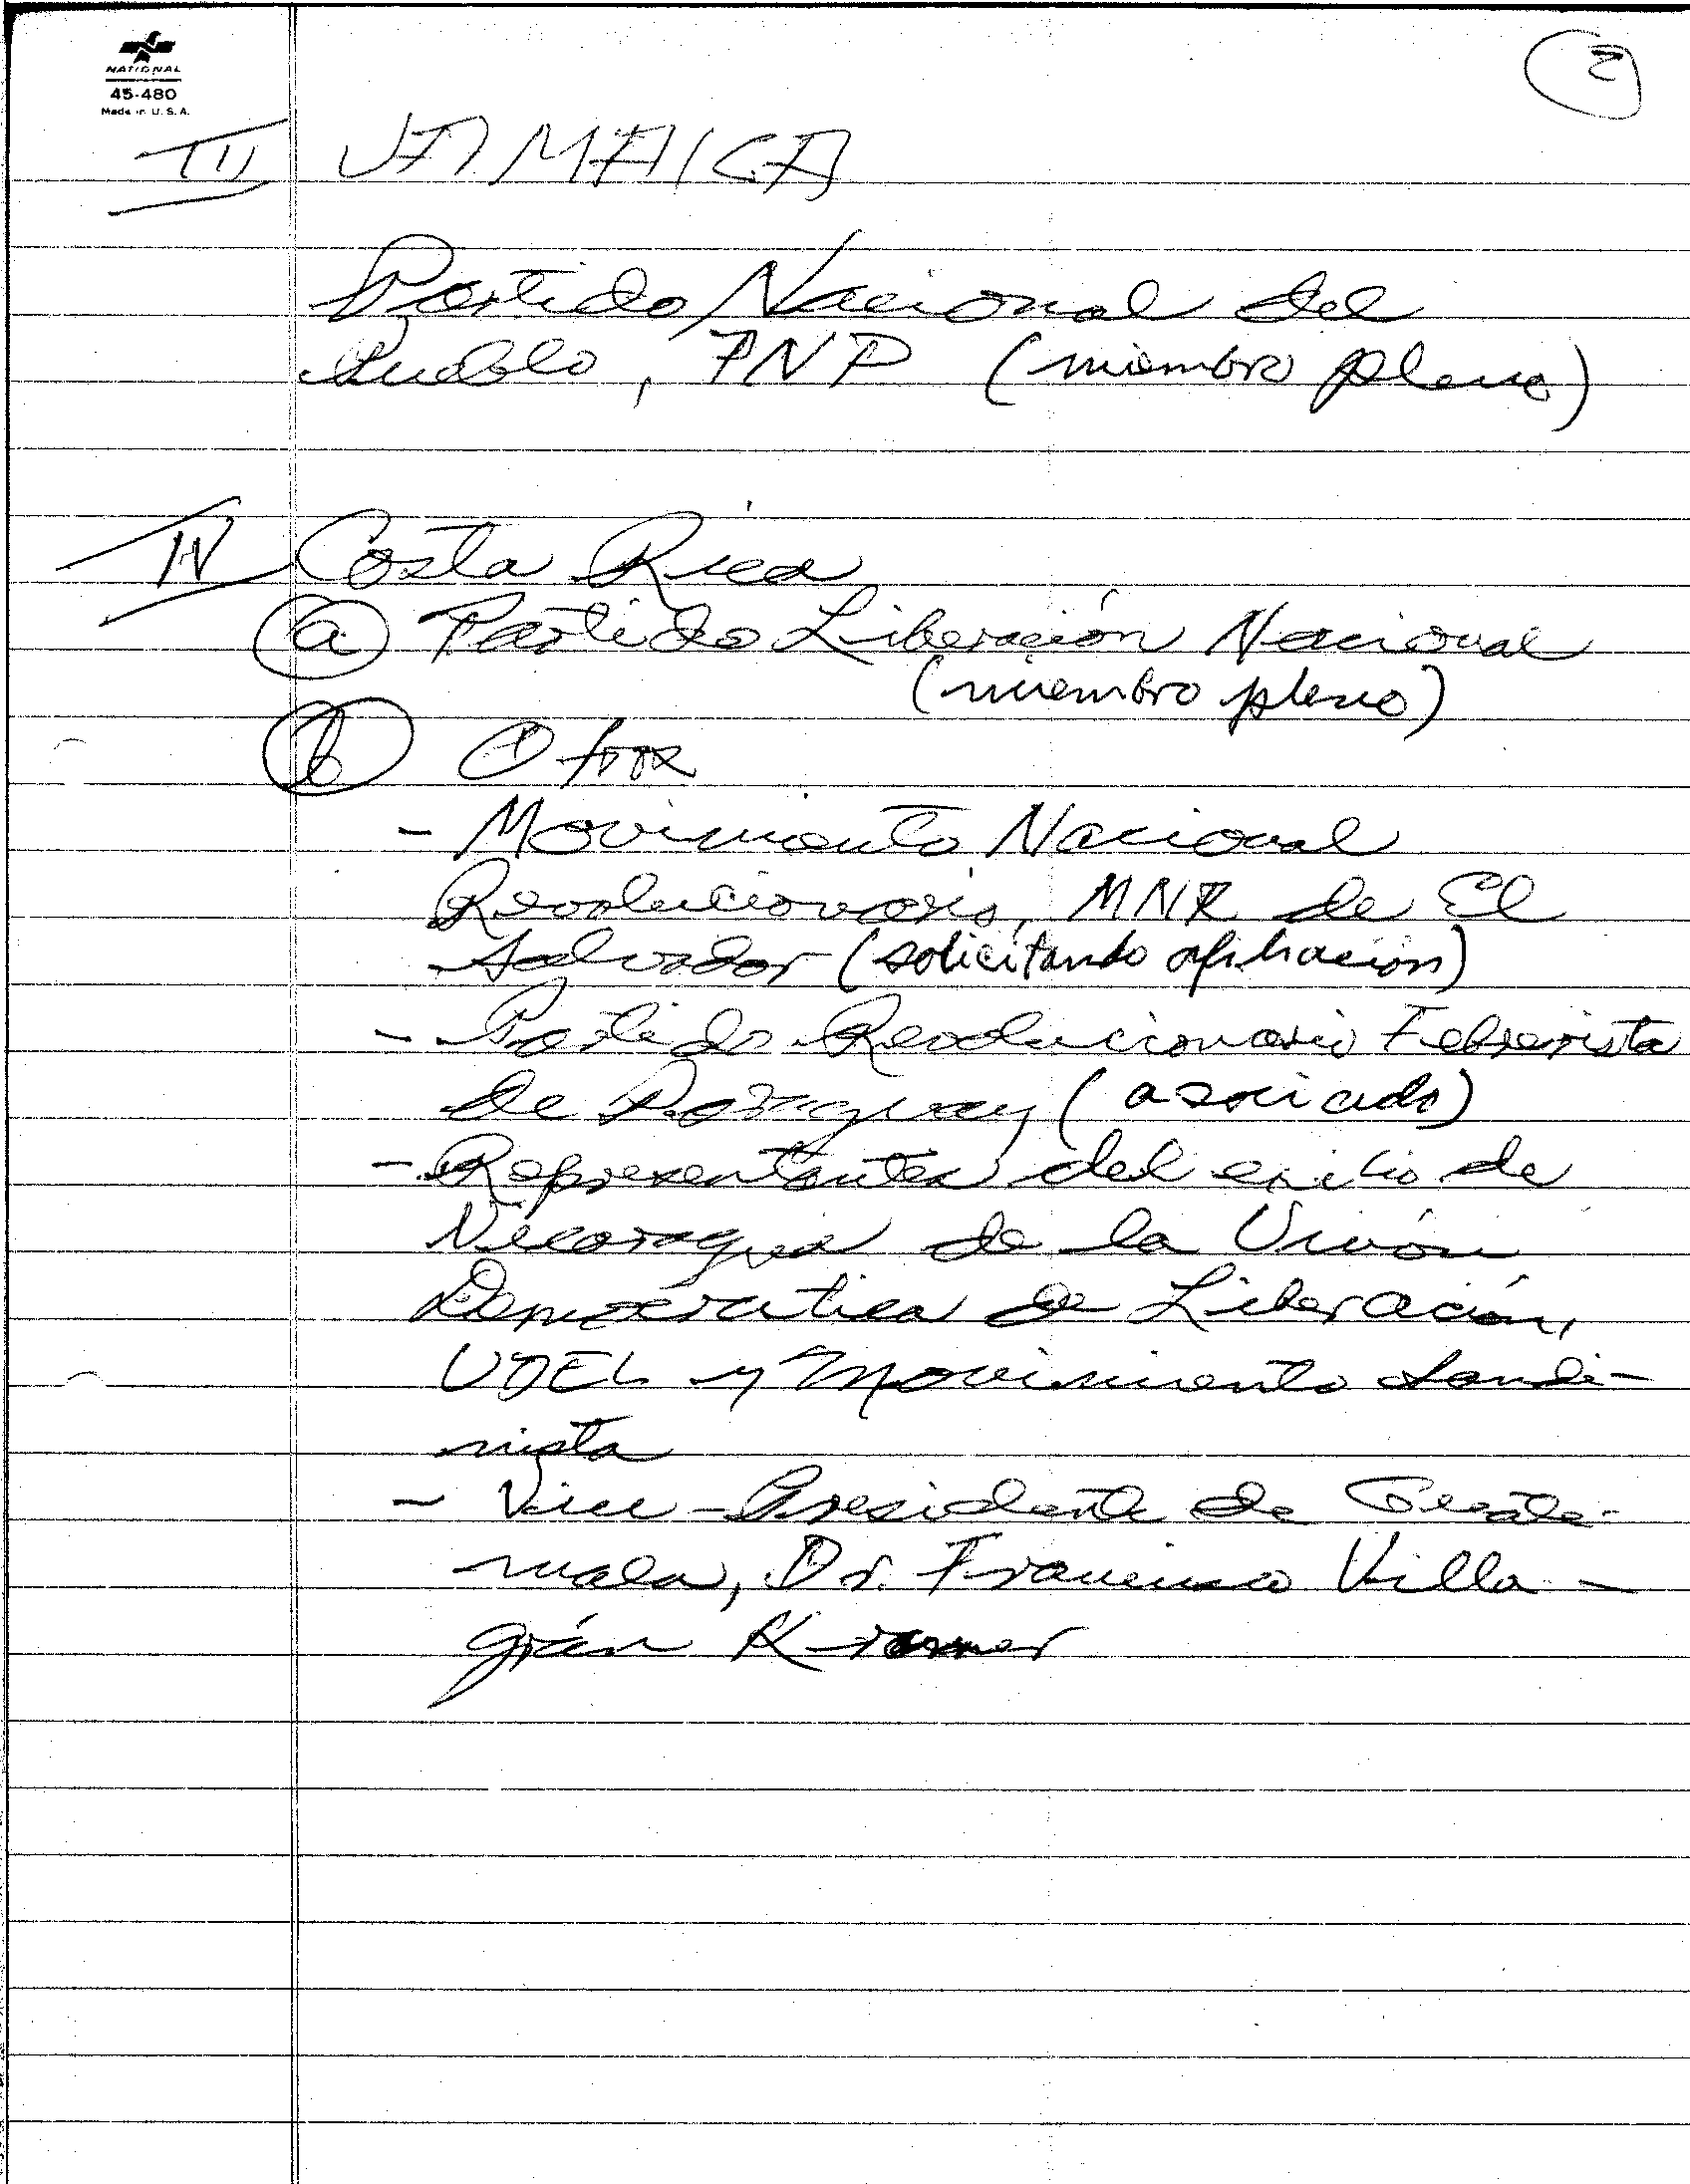 NATIONAL
45-480
Made in U.S.A.
2
III JAMAICA
Partido Nacional del
Pueblo, PNP (miembro pleno)
IV Costa Rica
a Partido Liberación Nacional
(miembro pleno)
b Otros
- Movimiento Nacional
Revolucionario, MNR de El
Salvador (solicitando afiliación)
- Partido Revolucionario Febrerista
de Paraguay (asociado)
- Representantes del exilio de
Nicaragua de la Unión
Democratica de Liberación,
UDEL y Movimiento Sandi-
nista
- Vice-Presidente de Guate-
mala, Dr. Francisco Villa-
grán Kramer